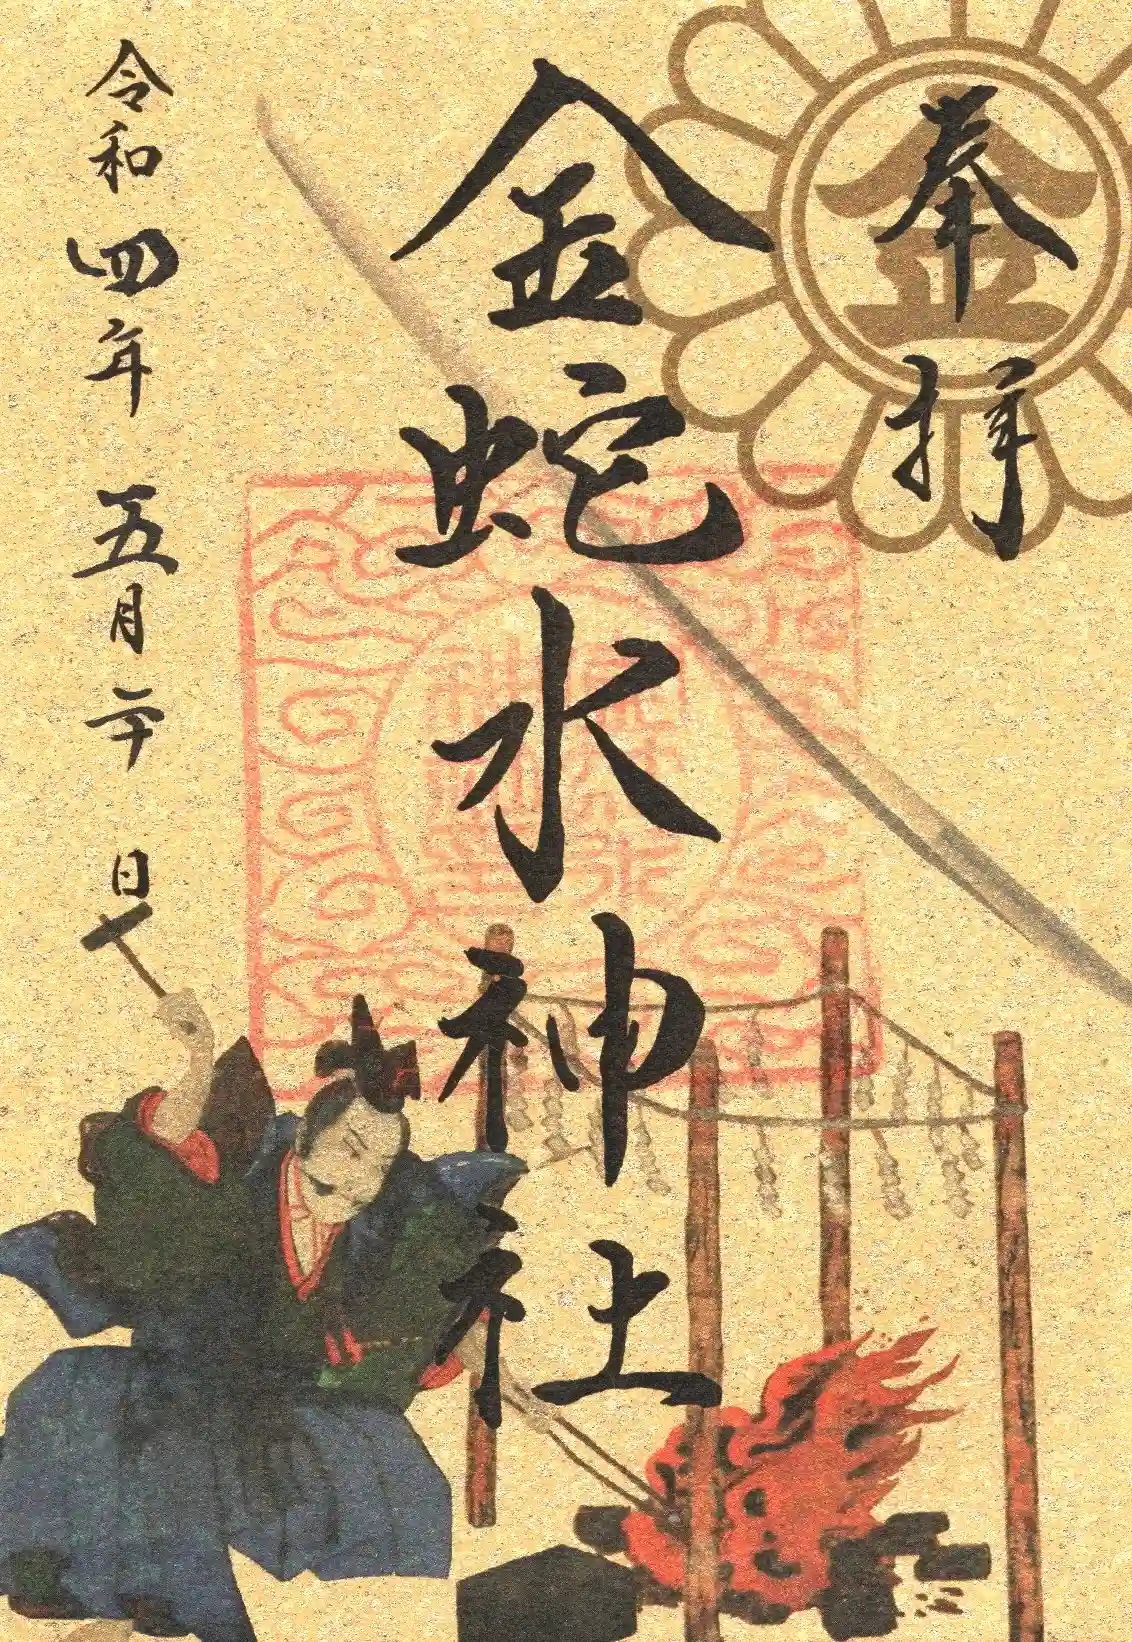 奉拝
金
金蛇水神社
令和四年五月二十日